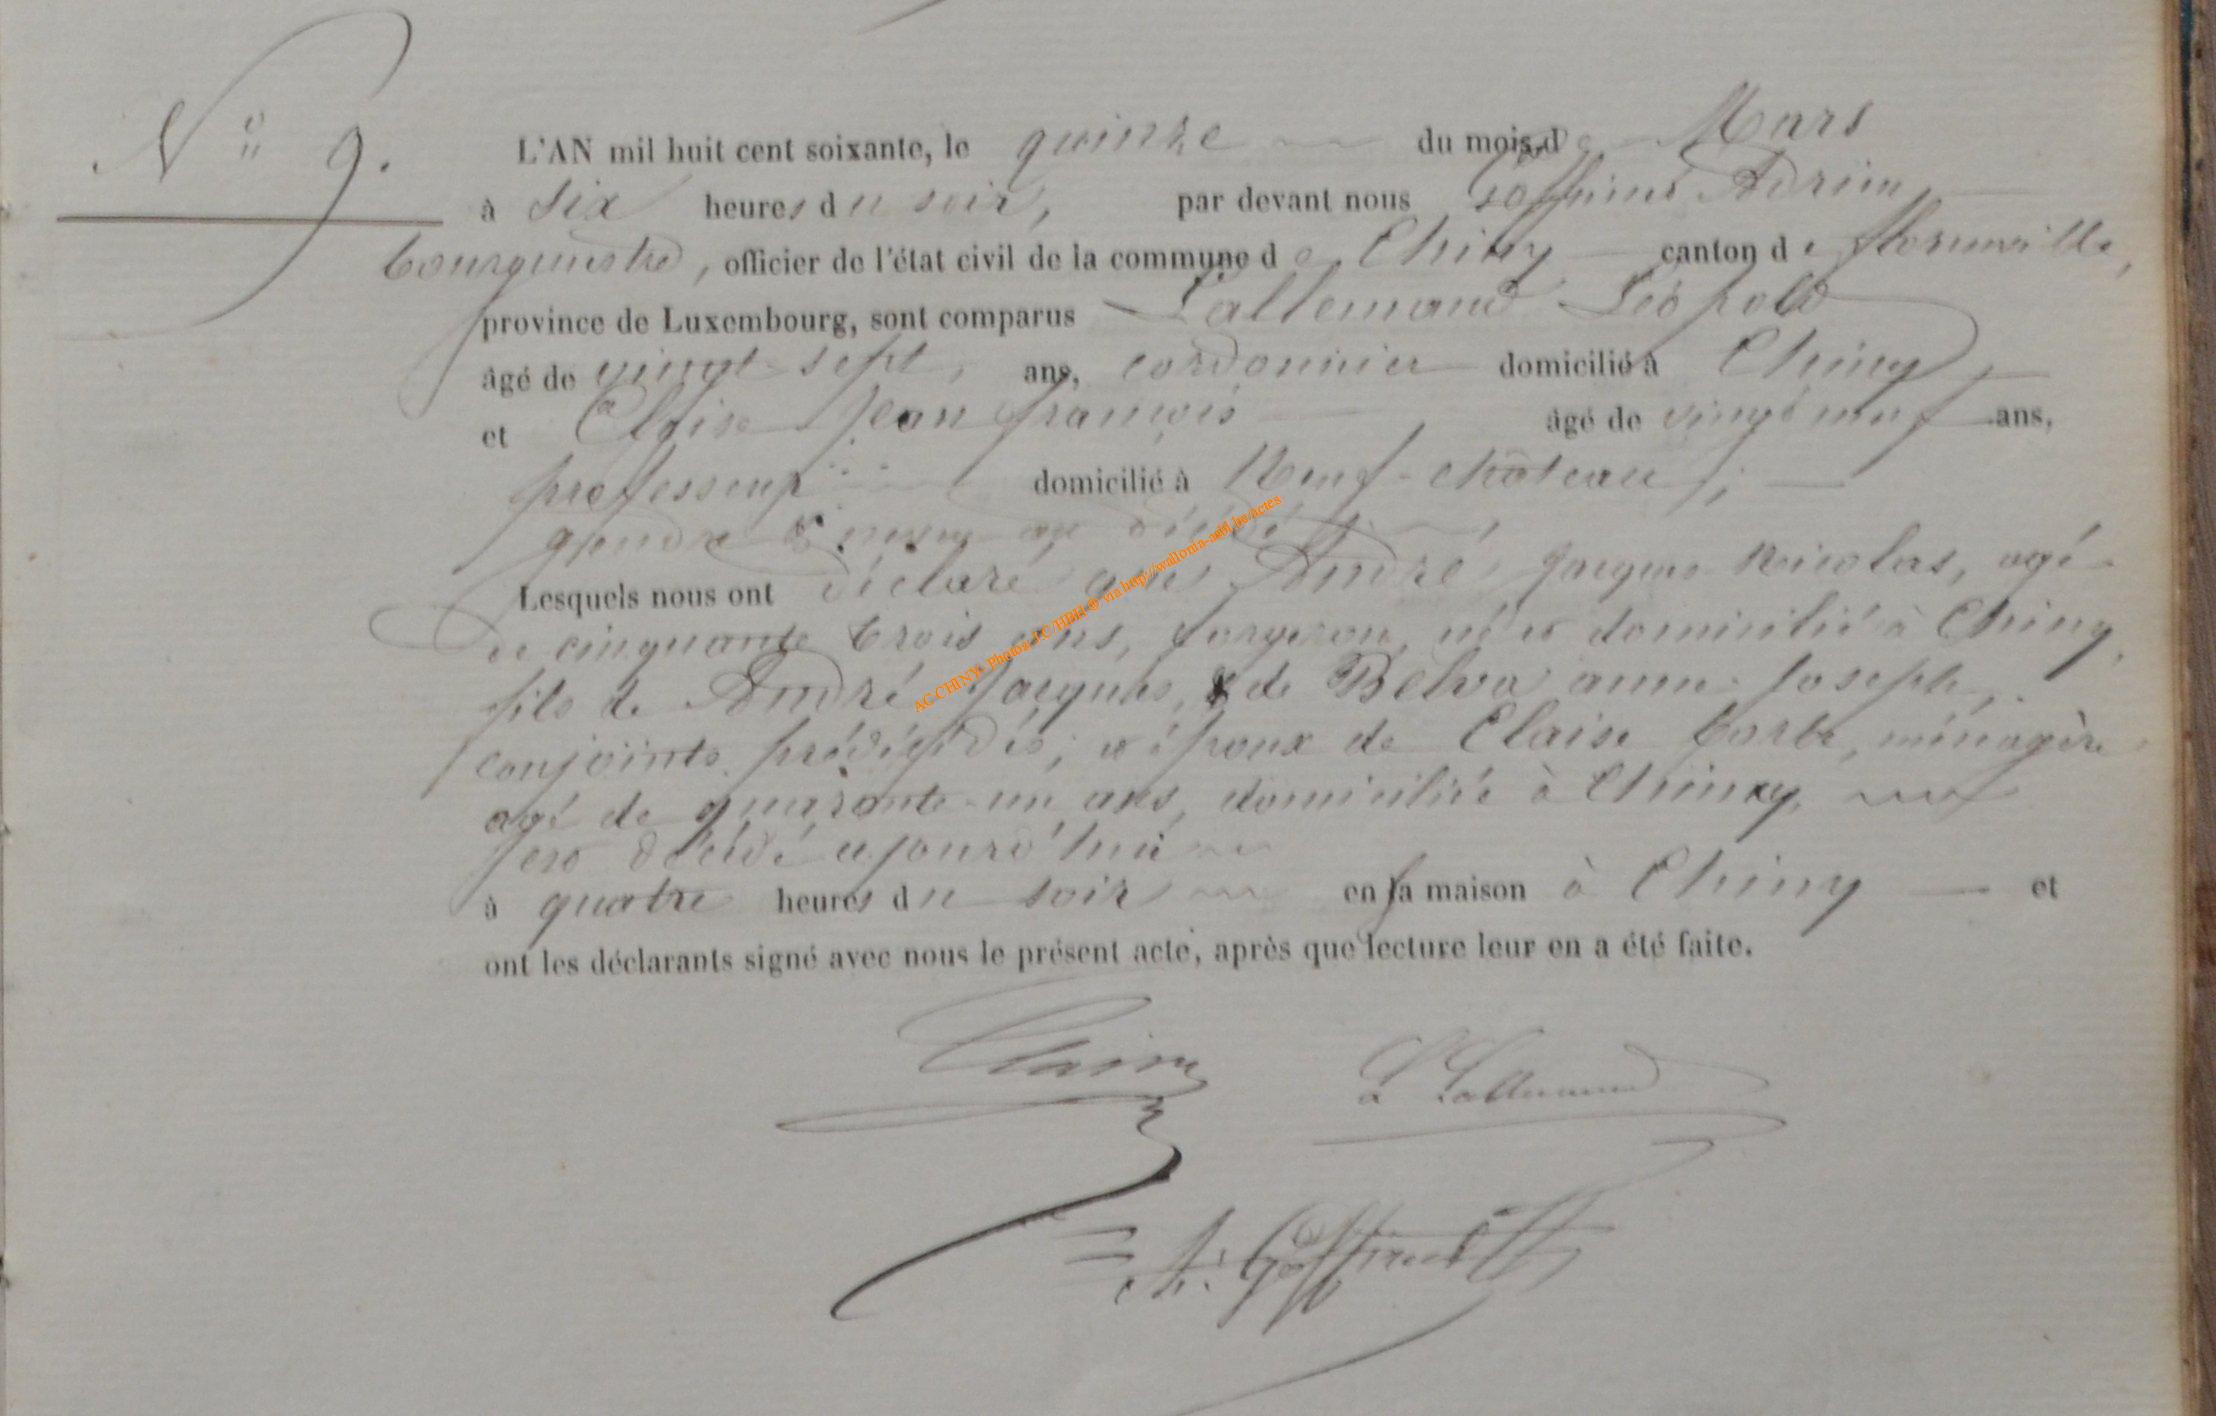 N° 9.
L'AN mil huit cent soixante, le quinze du mois de Mars
à six heures du soir, par devant nous Goffinet Adrien,
bourguestre, officier de l'état civil de la commune de Chiny canton de florenville,
province de Luxembourg, sont comparus Lallemand Léopold
âgé de vingt-sept, ans, cordonnier domicilié à Chiny
et Claise Jean françois âgé de vingt neuf ans,
professeur domicilié à Neuf-château;
gendre & neveu au décédé
Lesquels nous ont déclaré que André Jacques Nicolas, agé
de cinquante trois ans, forgeron, né et domicilié à Chiny,
fils de André Jacques, & de Belva anne-Joseph,
conjoints prédécédés; et époux de Claise barbe, ménagère
agé de quarante-un ans, domiciliée à Chiny,
est décédé ajourd'hui
à quatre heures du soir en sa maison à Chiny et
ont les déclarants signé avec nous le présent acte, après que lecture leur en a été faite.
Claise L Lallemand
A. Goffinet
AC CHINY- Photos J.C/HBH © via http://wallonia-asbl.be/actes